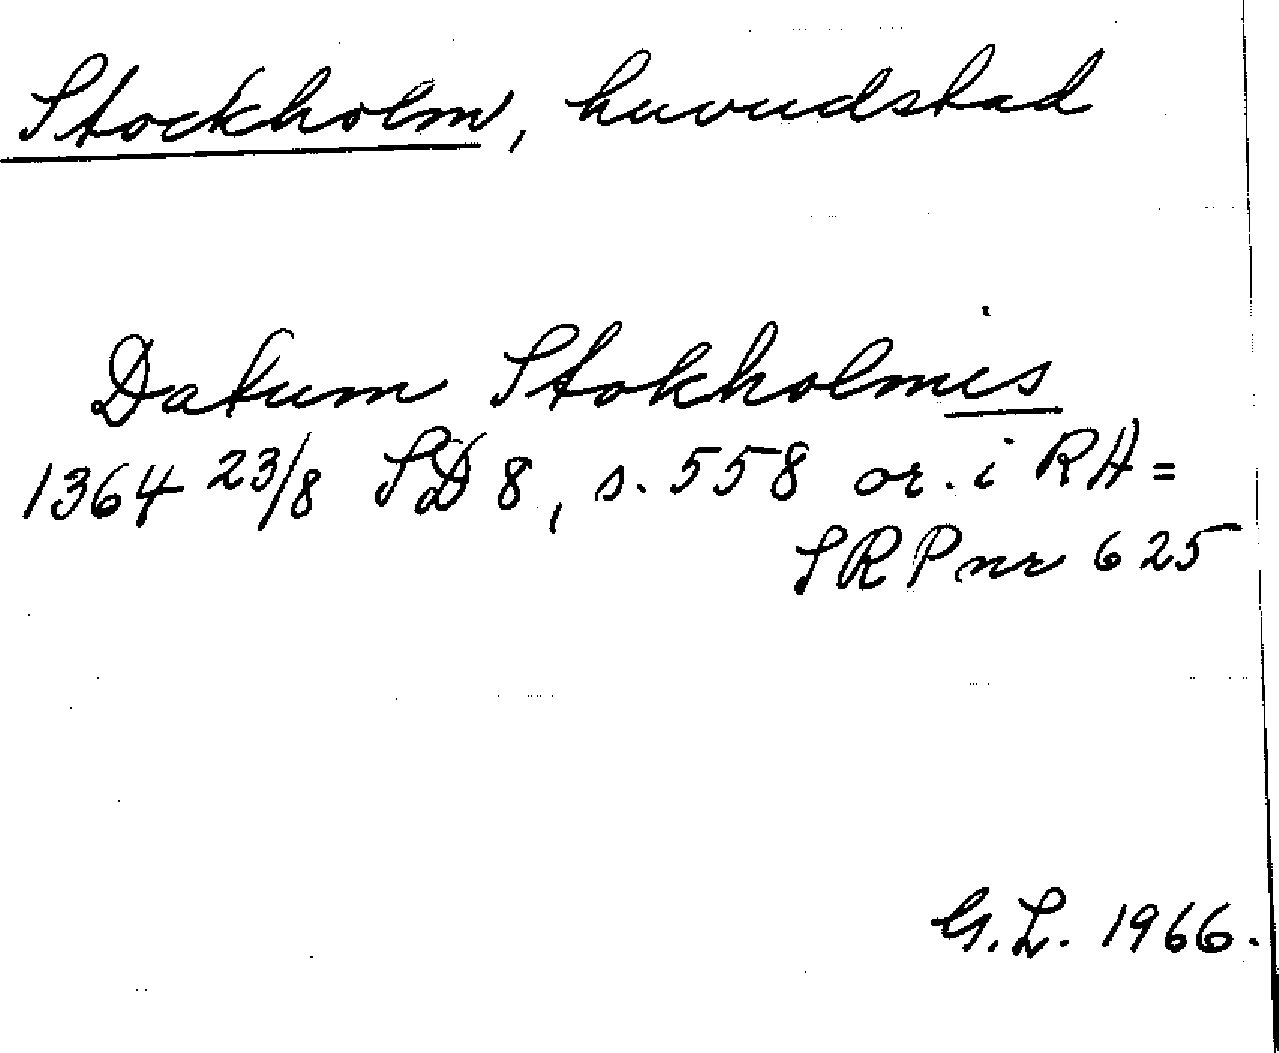 Stockholm, huvudstad
Datum Stokholmis
1364 23/8 SD 8, s. 558 or. i RA =
SRP nr 625
G.L. 1966.